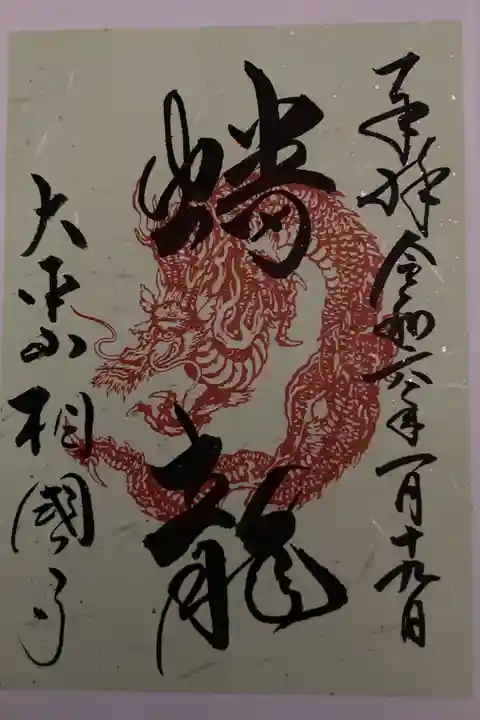 奉拝 令和六年一月十九日
蟠龍
大本山相國寺